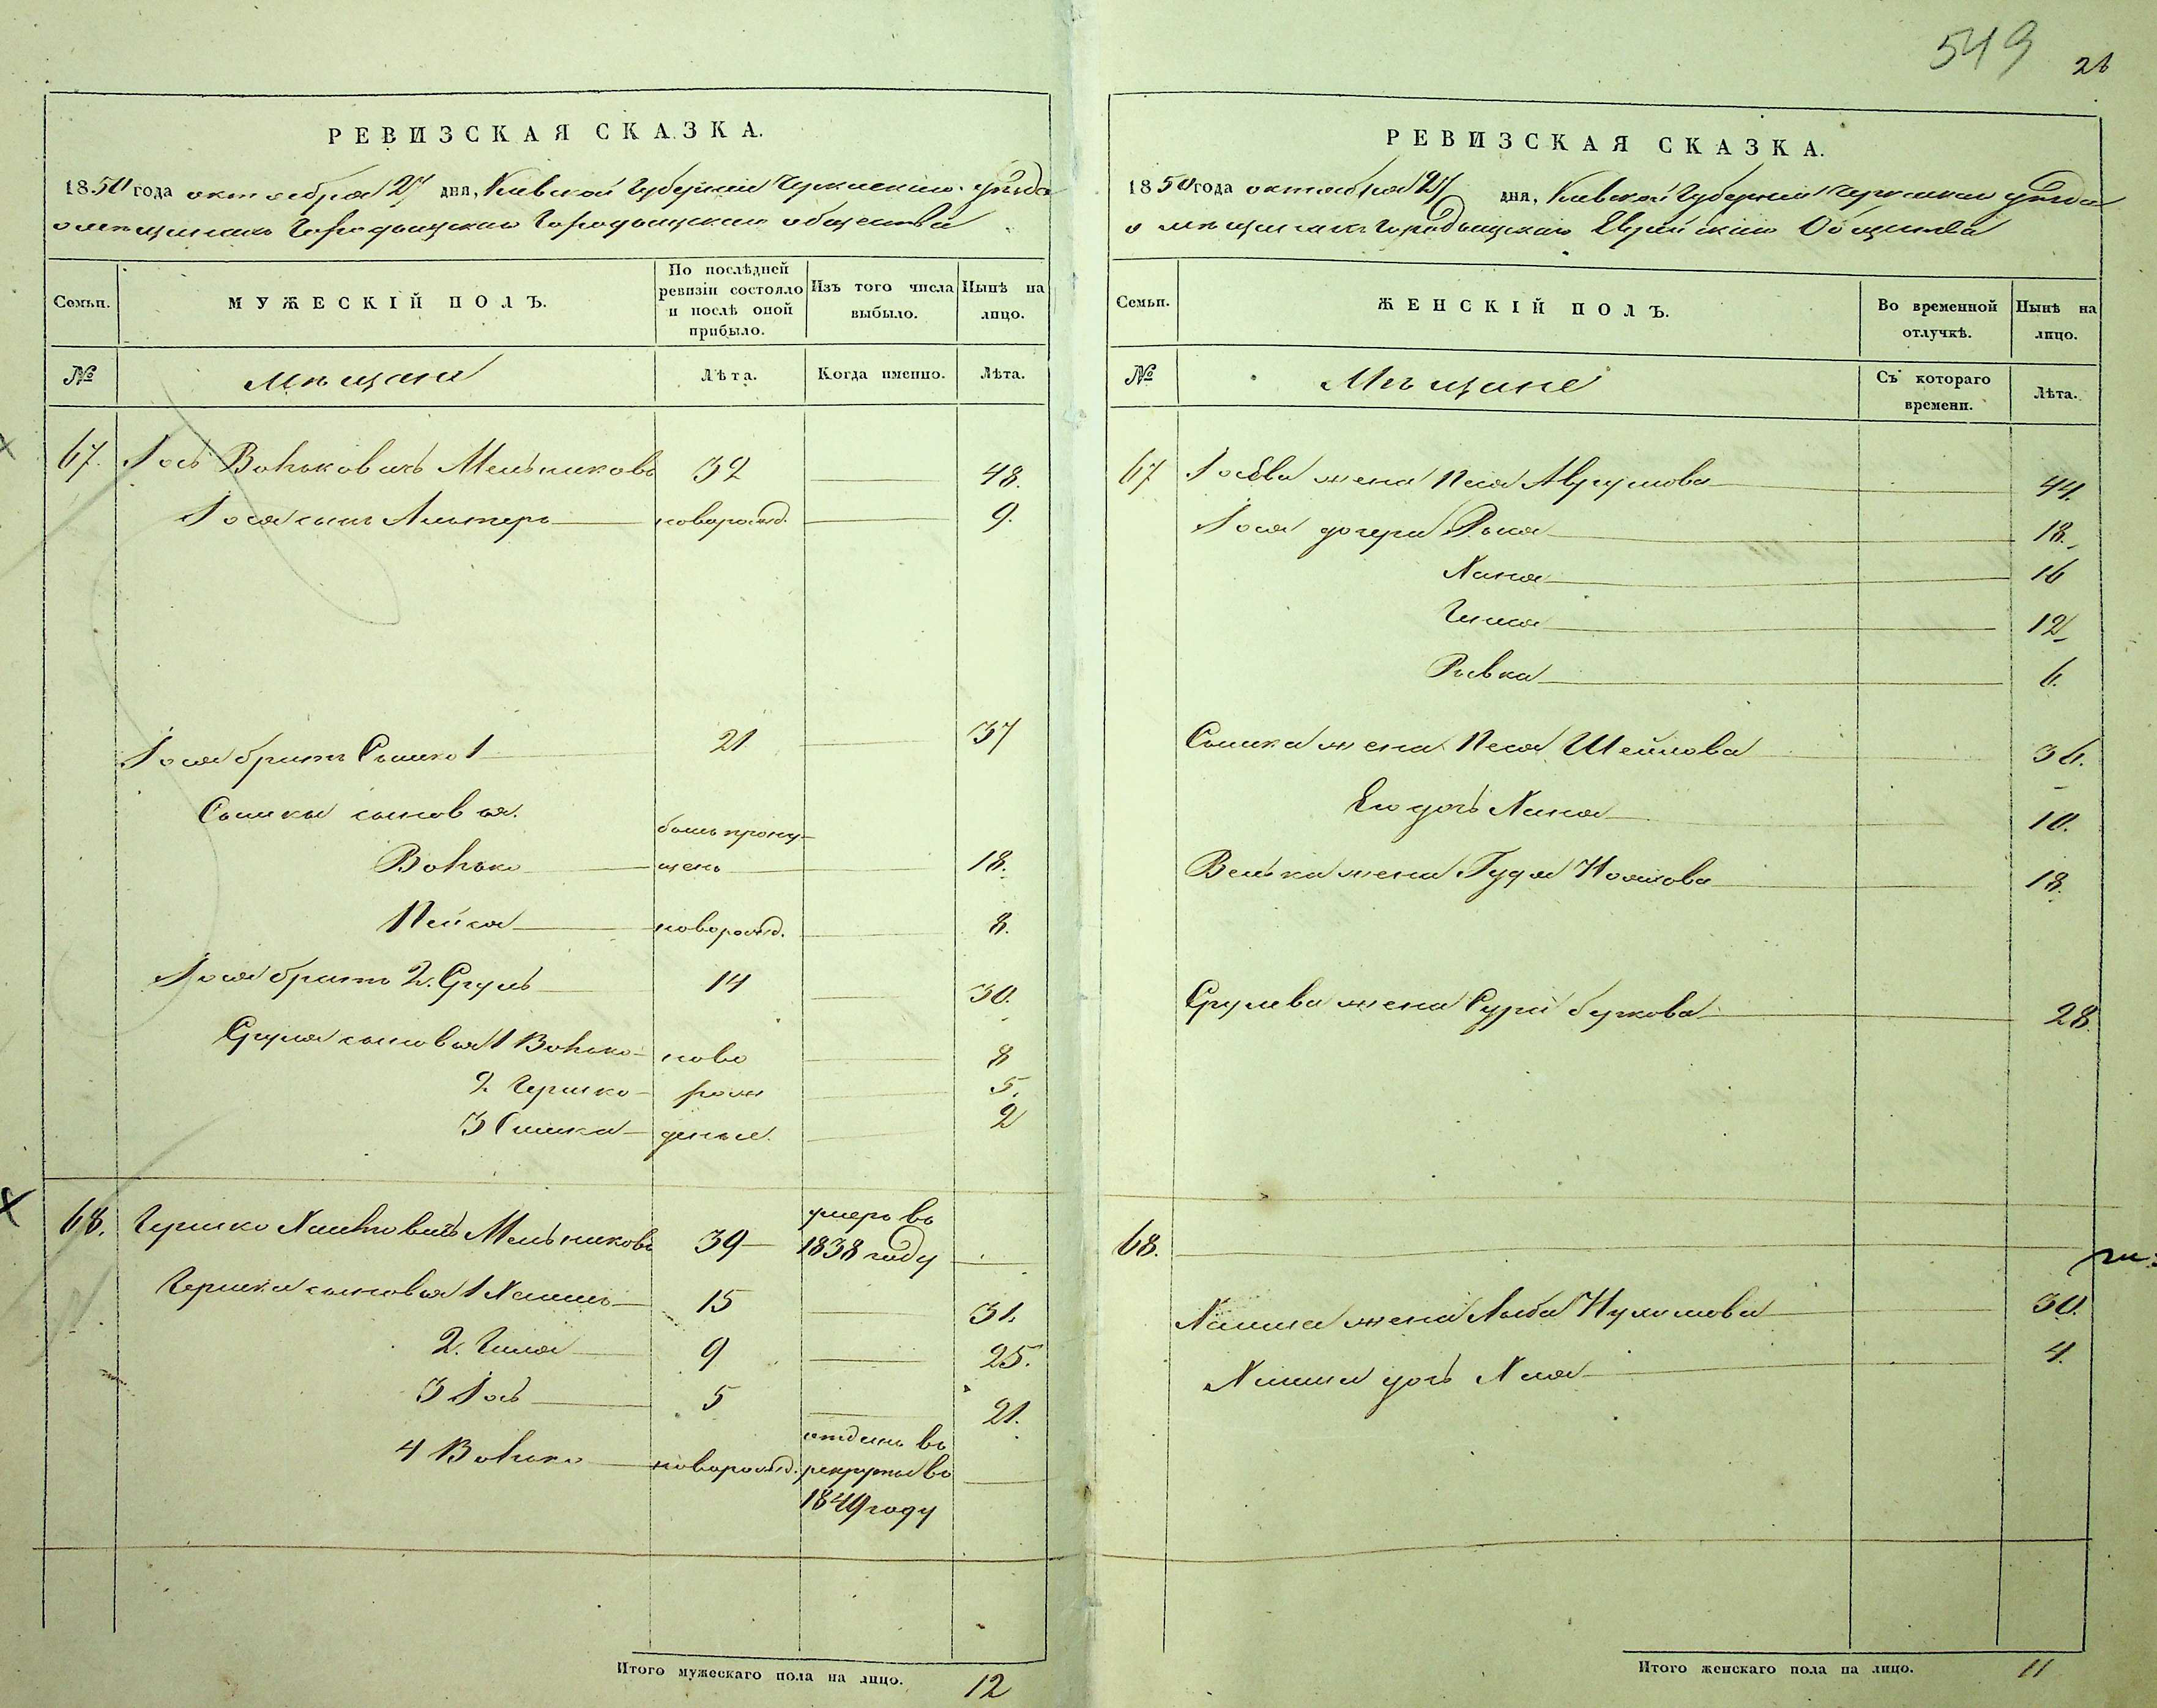 549
26
РЕВИЗСКАЯ СКАЗКА.
1850 года октября 27 дня, Киевской Губернии Черкаскаго уѣзда
о мѣщанахъ Городыщскаго Городыщскаго общества
Семьи.
МУЖЕСКІЙ ПОЛЪ.
По послѣдней ревизіи состояло и послѣ оной прибыло.
Изъ того числа выбыло.
Нынѣ на лицо.
№
Мѣщане
Лѣта.
Когда именно.
Лѣта.
67. Іось Вольковичъ Мельниковъ 32 48.
Іося сынъ Альтеръ новорожд. 9.
Іося братъ Сымко 1 21 37
Сымки сыновья.
былъ пропу-
Волько щенъ 18.
Пейся новорожд. 8.
Іося братъ 2. Сруль 14 30.
Сруля сыновья 1 Волько ново 8
2 Гершко рож 5.
3 Симха деные. 2
68. Гершко Хаимовичъ Мельниковъ 39 умеръ въ 1838 году
Гершка сыновья 1 Хаимъ 15 31.
2. 9 25.
3 Іось 5 21.
4 Волько новорожд. отданъ въ рекруты въ 1849 году
Итого мужескаго пола на лицо. 12
РЕВИЗСКАЯ СКАЗКА.
1850 года октября 27 дня, Киевской Губернии Черкаскаго уѣзда
о мѣщанахъ Городыщскаго Еврейскаго Общества
Семьи.
ЖЕНСКІЙ ПОЛЪ.
Во временной отлучкѣ.
Нынѣ на лицо.
№
Мѣщане
Съ котораго времени.
Лѣта.
67 Іосева жена Песя Аврумова 44.
Іося дочери 18.
Хана 16
12
Рывка 6.
Сымка жена Песя 36.
Его дочь Хана 10.
Велька жена Гудя 18.
Срулева жена Сура Беркова 28.
68.
Хаима жена Лыба Нухимова 30.
Хаима дочь Хая 4.
Итого женскаго пола на лицо. 11